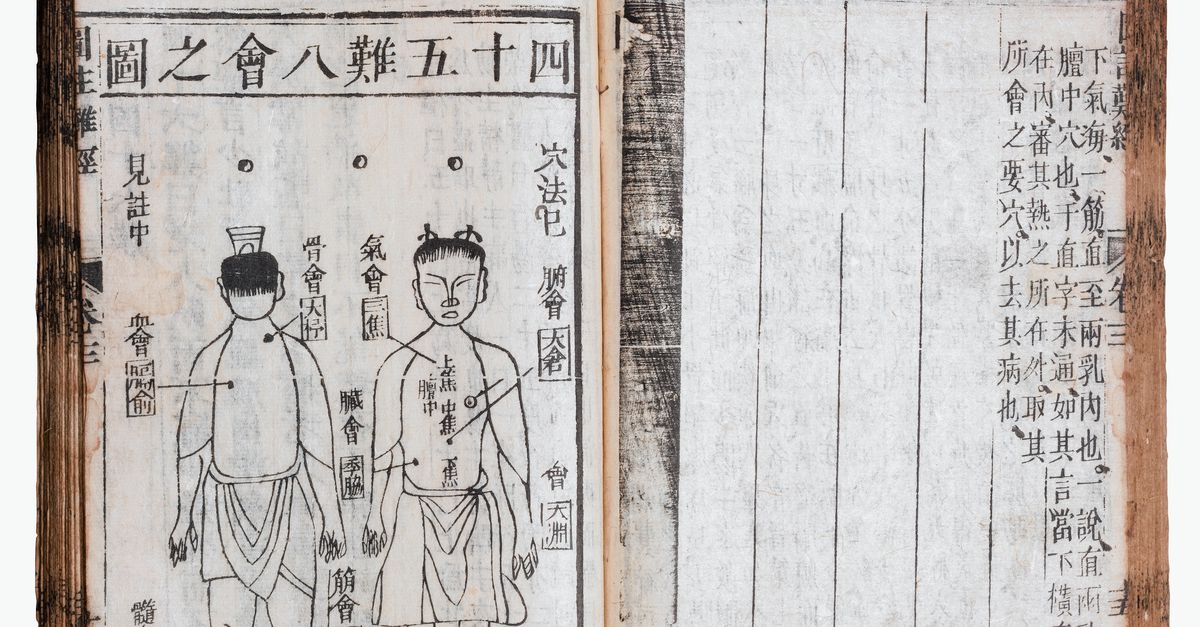 下氣海、一筋直至兩乳內也。一說直兩
膻中穴也、于直字未通、如其言當下橫
在內、審其熱之所在、外取其
所會之要穴、以去其病也、
四十五難八會之圖
穴法已
腑會
太倉
會
太淵
氣會
三焦
上焦
膻中
中焦
下焦
臟會
季脇
骨會
大杼
筋會
見註中
血會
膈俞
髓
圖註難經
卷三